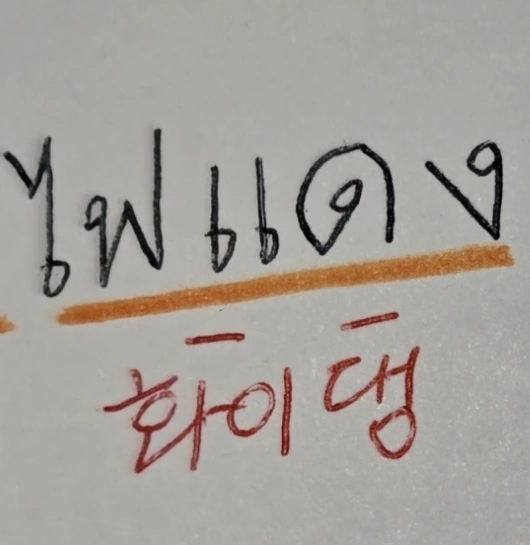 ไฟแดง
화이 댕